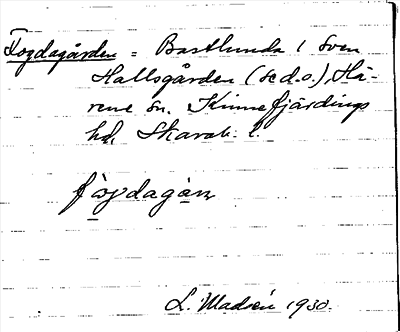 Fogdagården = Bastlunda 1 Sven
Hallsgården (se d.o.), Hä-
rene sn. Kinnefjärdings
hd, Skarab. l.
fògdagạ̊n
L. Madsén 1930.